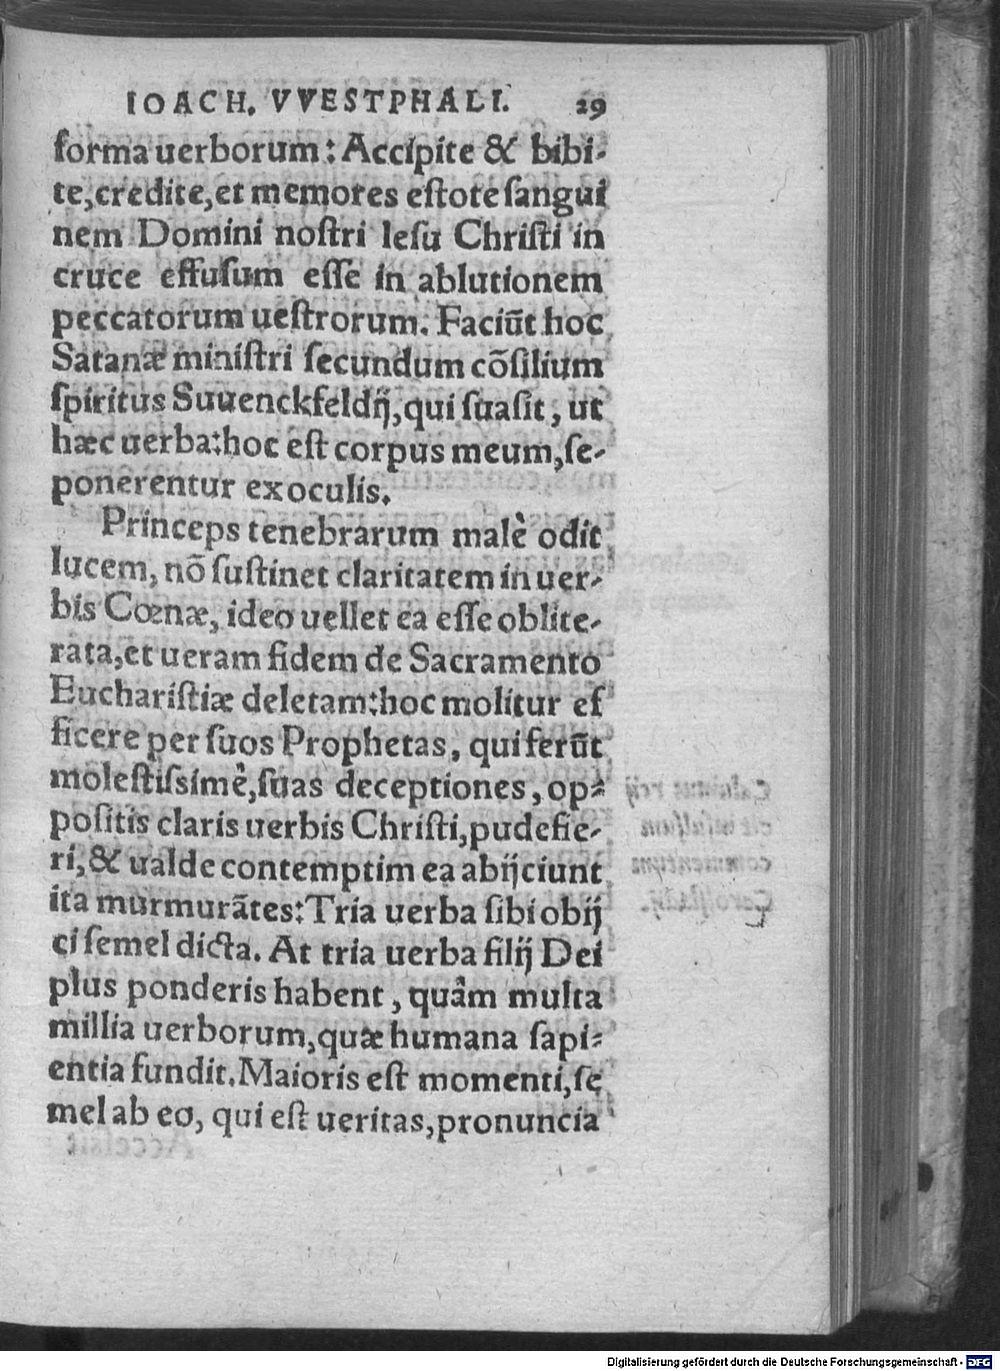 IOACH. VVESTPHALI. 29
forma uerborum: Accipite & bibi-
te, credite, et memores estote sangui
nem Domini nostri Iesu Christi in
cruce effusum esse in ablutionem
peccatorum uestrorum. Faciūt hoc
Satanæ ministri secundum cōsilium
spiritus Suuenckfeldij, qui suasit, ut
hæc uerba: hoc est corpus meum, se-
ponerentur ex oculis.
Princeps tenebrarum malè odit
lucem, nō sustinet claritatem in uer-
bis Cœnæ, ideo uellet ea esse oblite-
rata, et ueram fidem de Sacramento
Eucharistiæ deletam: hoc molitur ef
ficere per suos Prophetas, qui ferūt
molestissimè, suas deceptiones, op-
positis claris uerbis Christi, pudefie-
ri, & ualde contemptim ea abijciunt
ita murmurātes: Tria uerba sibi obij
ci semel dicta. At tria uerba filij Dei
plus ponderis habent, quàm multa
millia uerborum, quæ humana sapi-
entia fundit. Maioris est momenti, se
mel ab eo, qui est ueritas, pronuncia
Digitalisierung gefördert durch die Deutsche Forschungsgemeinschaft - DFG